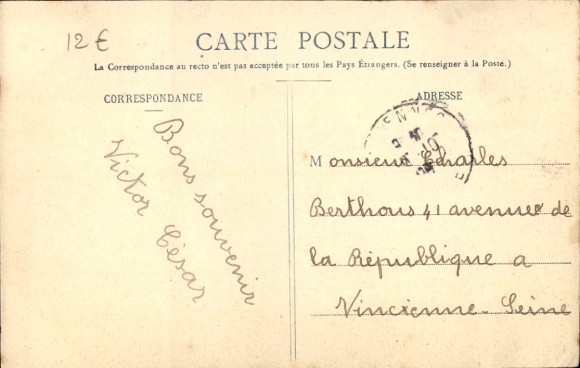 12 €
CARTE POSTALE
La Correspondance au recto n'est pas acceptée par tous les Pays Étrangers. (Se renseigner à la Poste.)
CORRESPONDANCE
Bons souvenir
Victor César
ADRESSE
Monsieur Charles
Berthous 41 avenue de
la République a
Vincienne-Seine